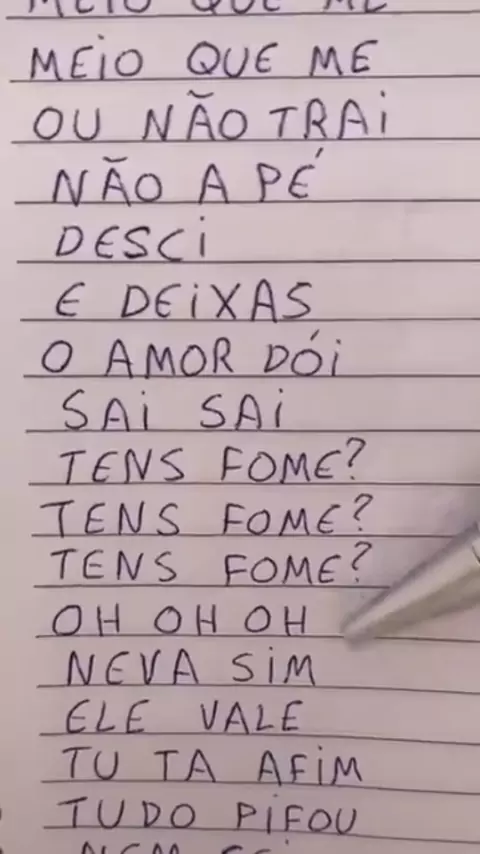 MEIO QUE ME
MEIO QUE ME
OU NÃO TRAI
NÃO A PÉ
DESCI
E DEIXAS
O AMOR DÓI
SAI SAI
TENS FOME?
TENS FOME?
TENS FOME?
OH OH OH
NEVA SIM
ELE VALE
TU TA AFIM
TUDO PIFOU